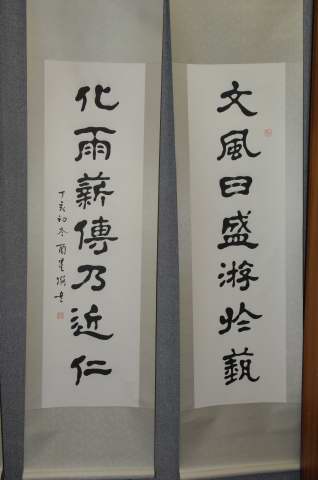 文風日盛游於藝
化雨薪傳乃近仁
丁亥初冬